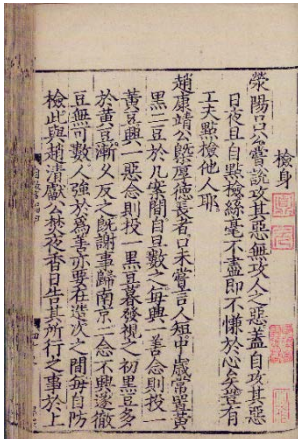 檢身
滎陽呂公嘗說攻其惡無攻人之惡蓋自攻其惡
日夜且自點檢絲毫不盡即不慊於心矣豈有
工夫點檢他人耶
趙康靖公槩厚德長者口未嘗言人短中歲常置黃
黑二豆於几案間自旦數之每興一善念則投一
黃豆興一惡念則投一黑豆暮發視之初黑豆多
於黃豆漸久反之既謝事歸南京二念不興遂徹
豆無可數人強於為善亦要在造次之間每自防
檢此與趙清獻公焚夜香日告其所行之事於上